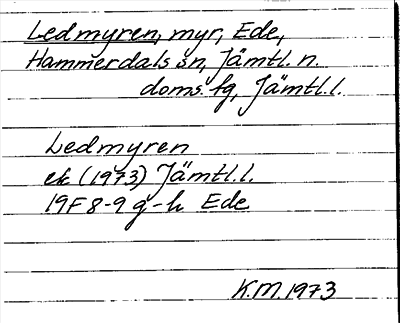 Ledmyren, myr, Ede,
Hammerdals sn, Jämtl. n.
doms. fg, Jämtl. l.
Ledmyren
ek (1973) Jämtl. l.
19F 8-9 g-h Ede
K.M. 1973